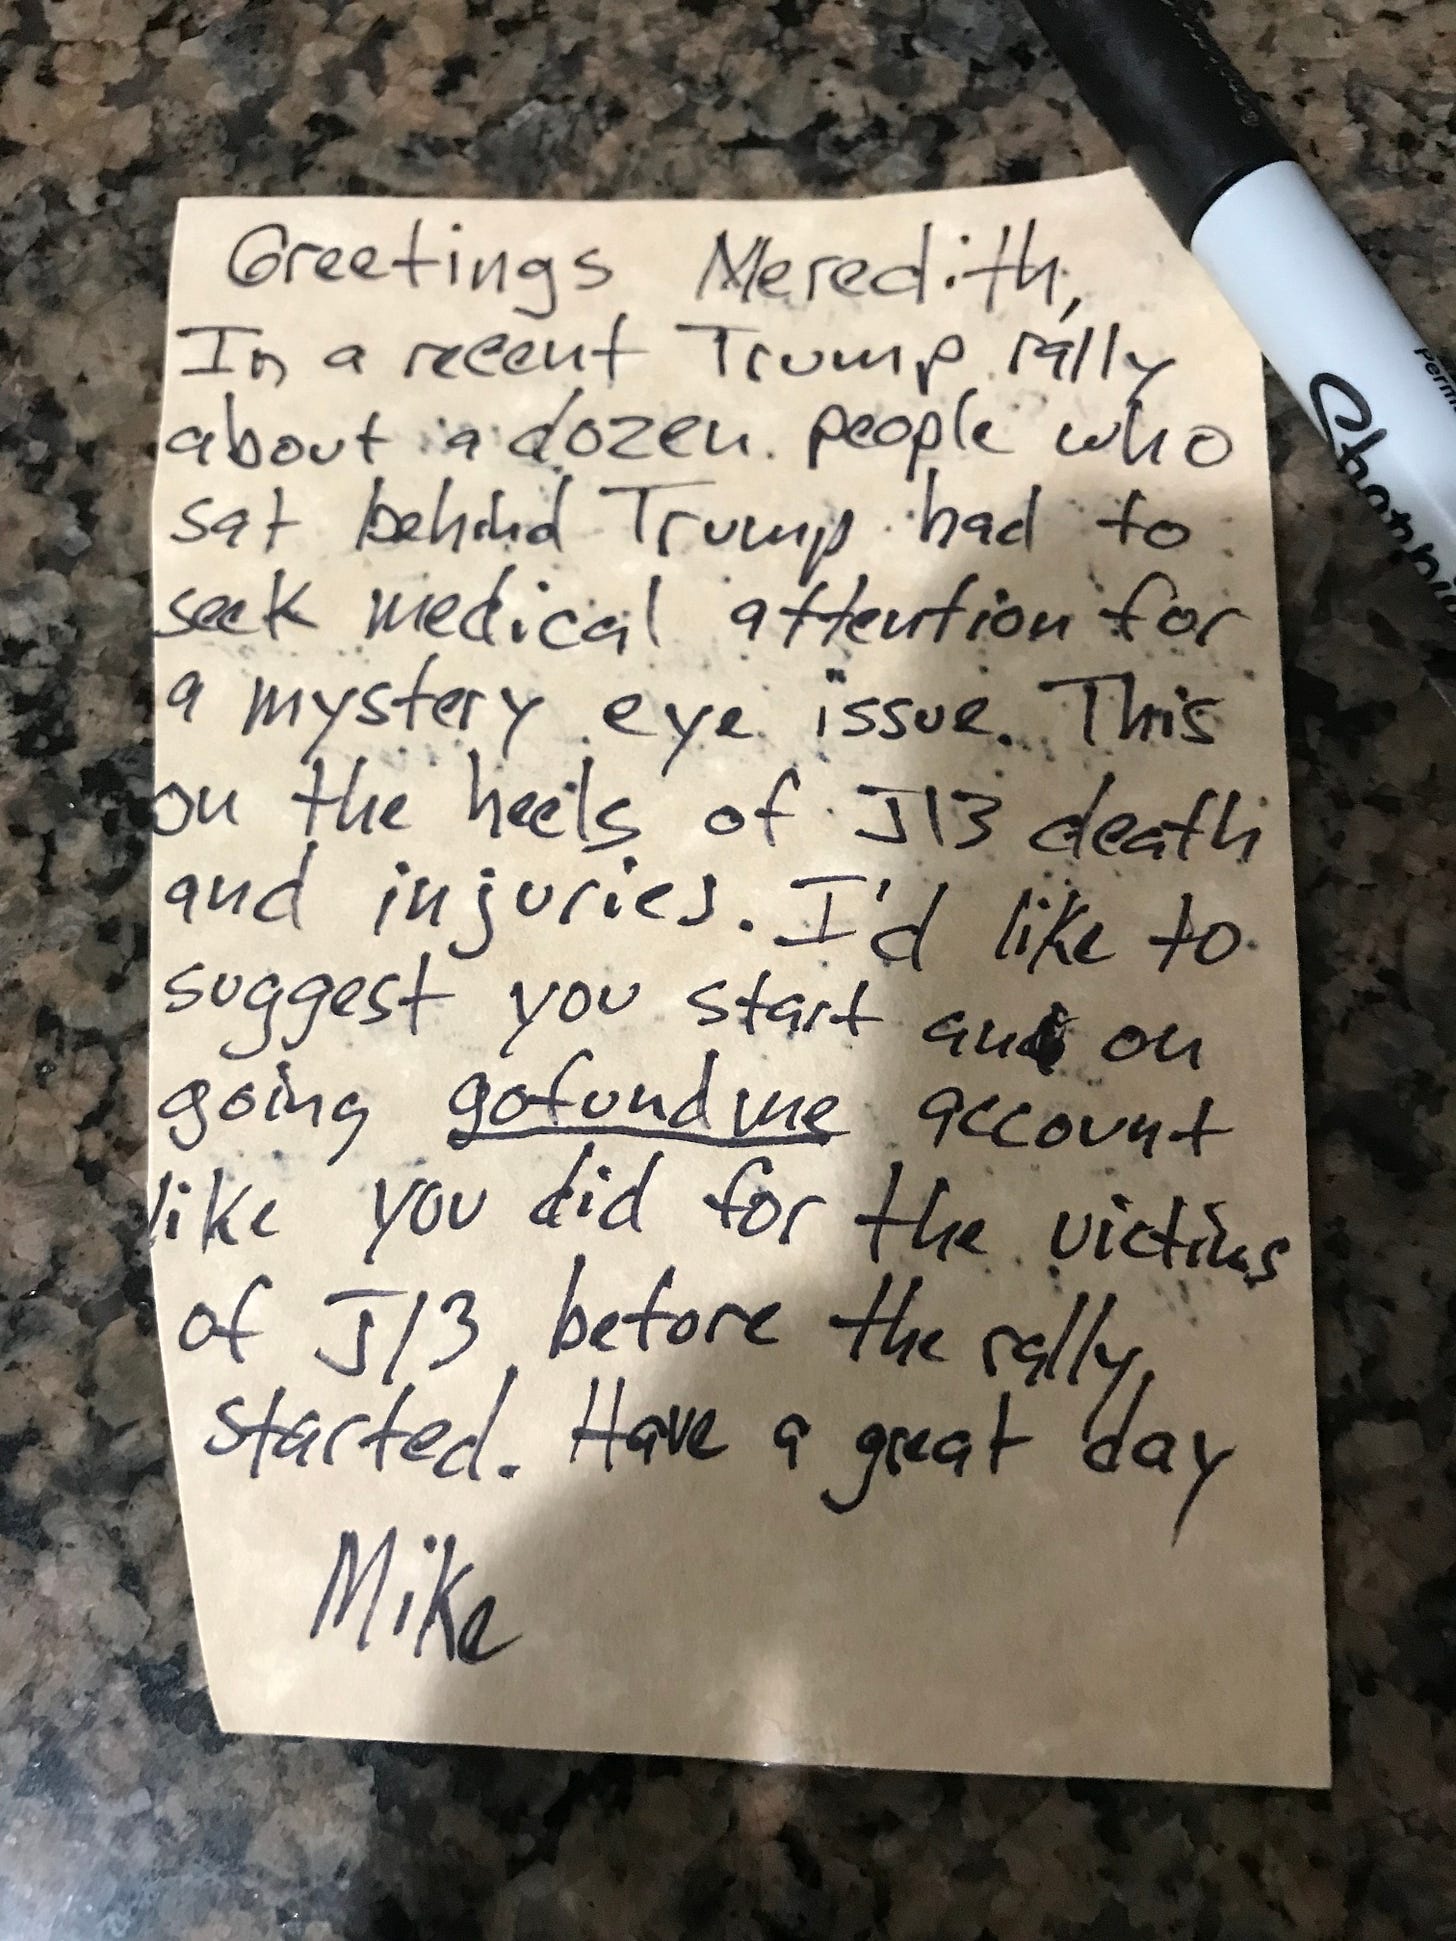 Greetings Meredith,
In a recent Trump rally
about a dozen people who
sat behind Trump had to
seek medical attention for
a mystery eye issue. This
on the heels of J13 death
and injuries. I'd like to
suggest you start an on
going gofundme account
like you did for the victims
of J/3 before the rally
started. Have a great day
Mike
Sharpie